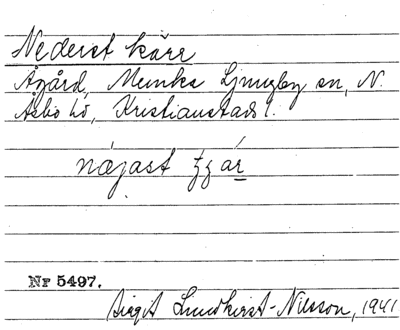 Nederst kärr
Ågård, Munka Ljungby sn, N.
Åsbo hd, Kristianstads l.
Nr 5497.
Birgit Lundkvist-Nilsson, 1941